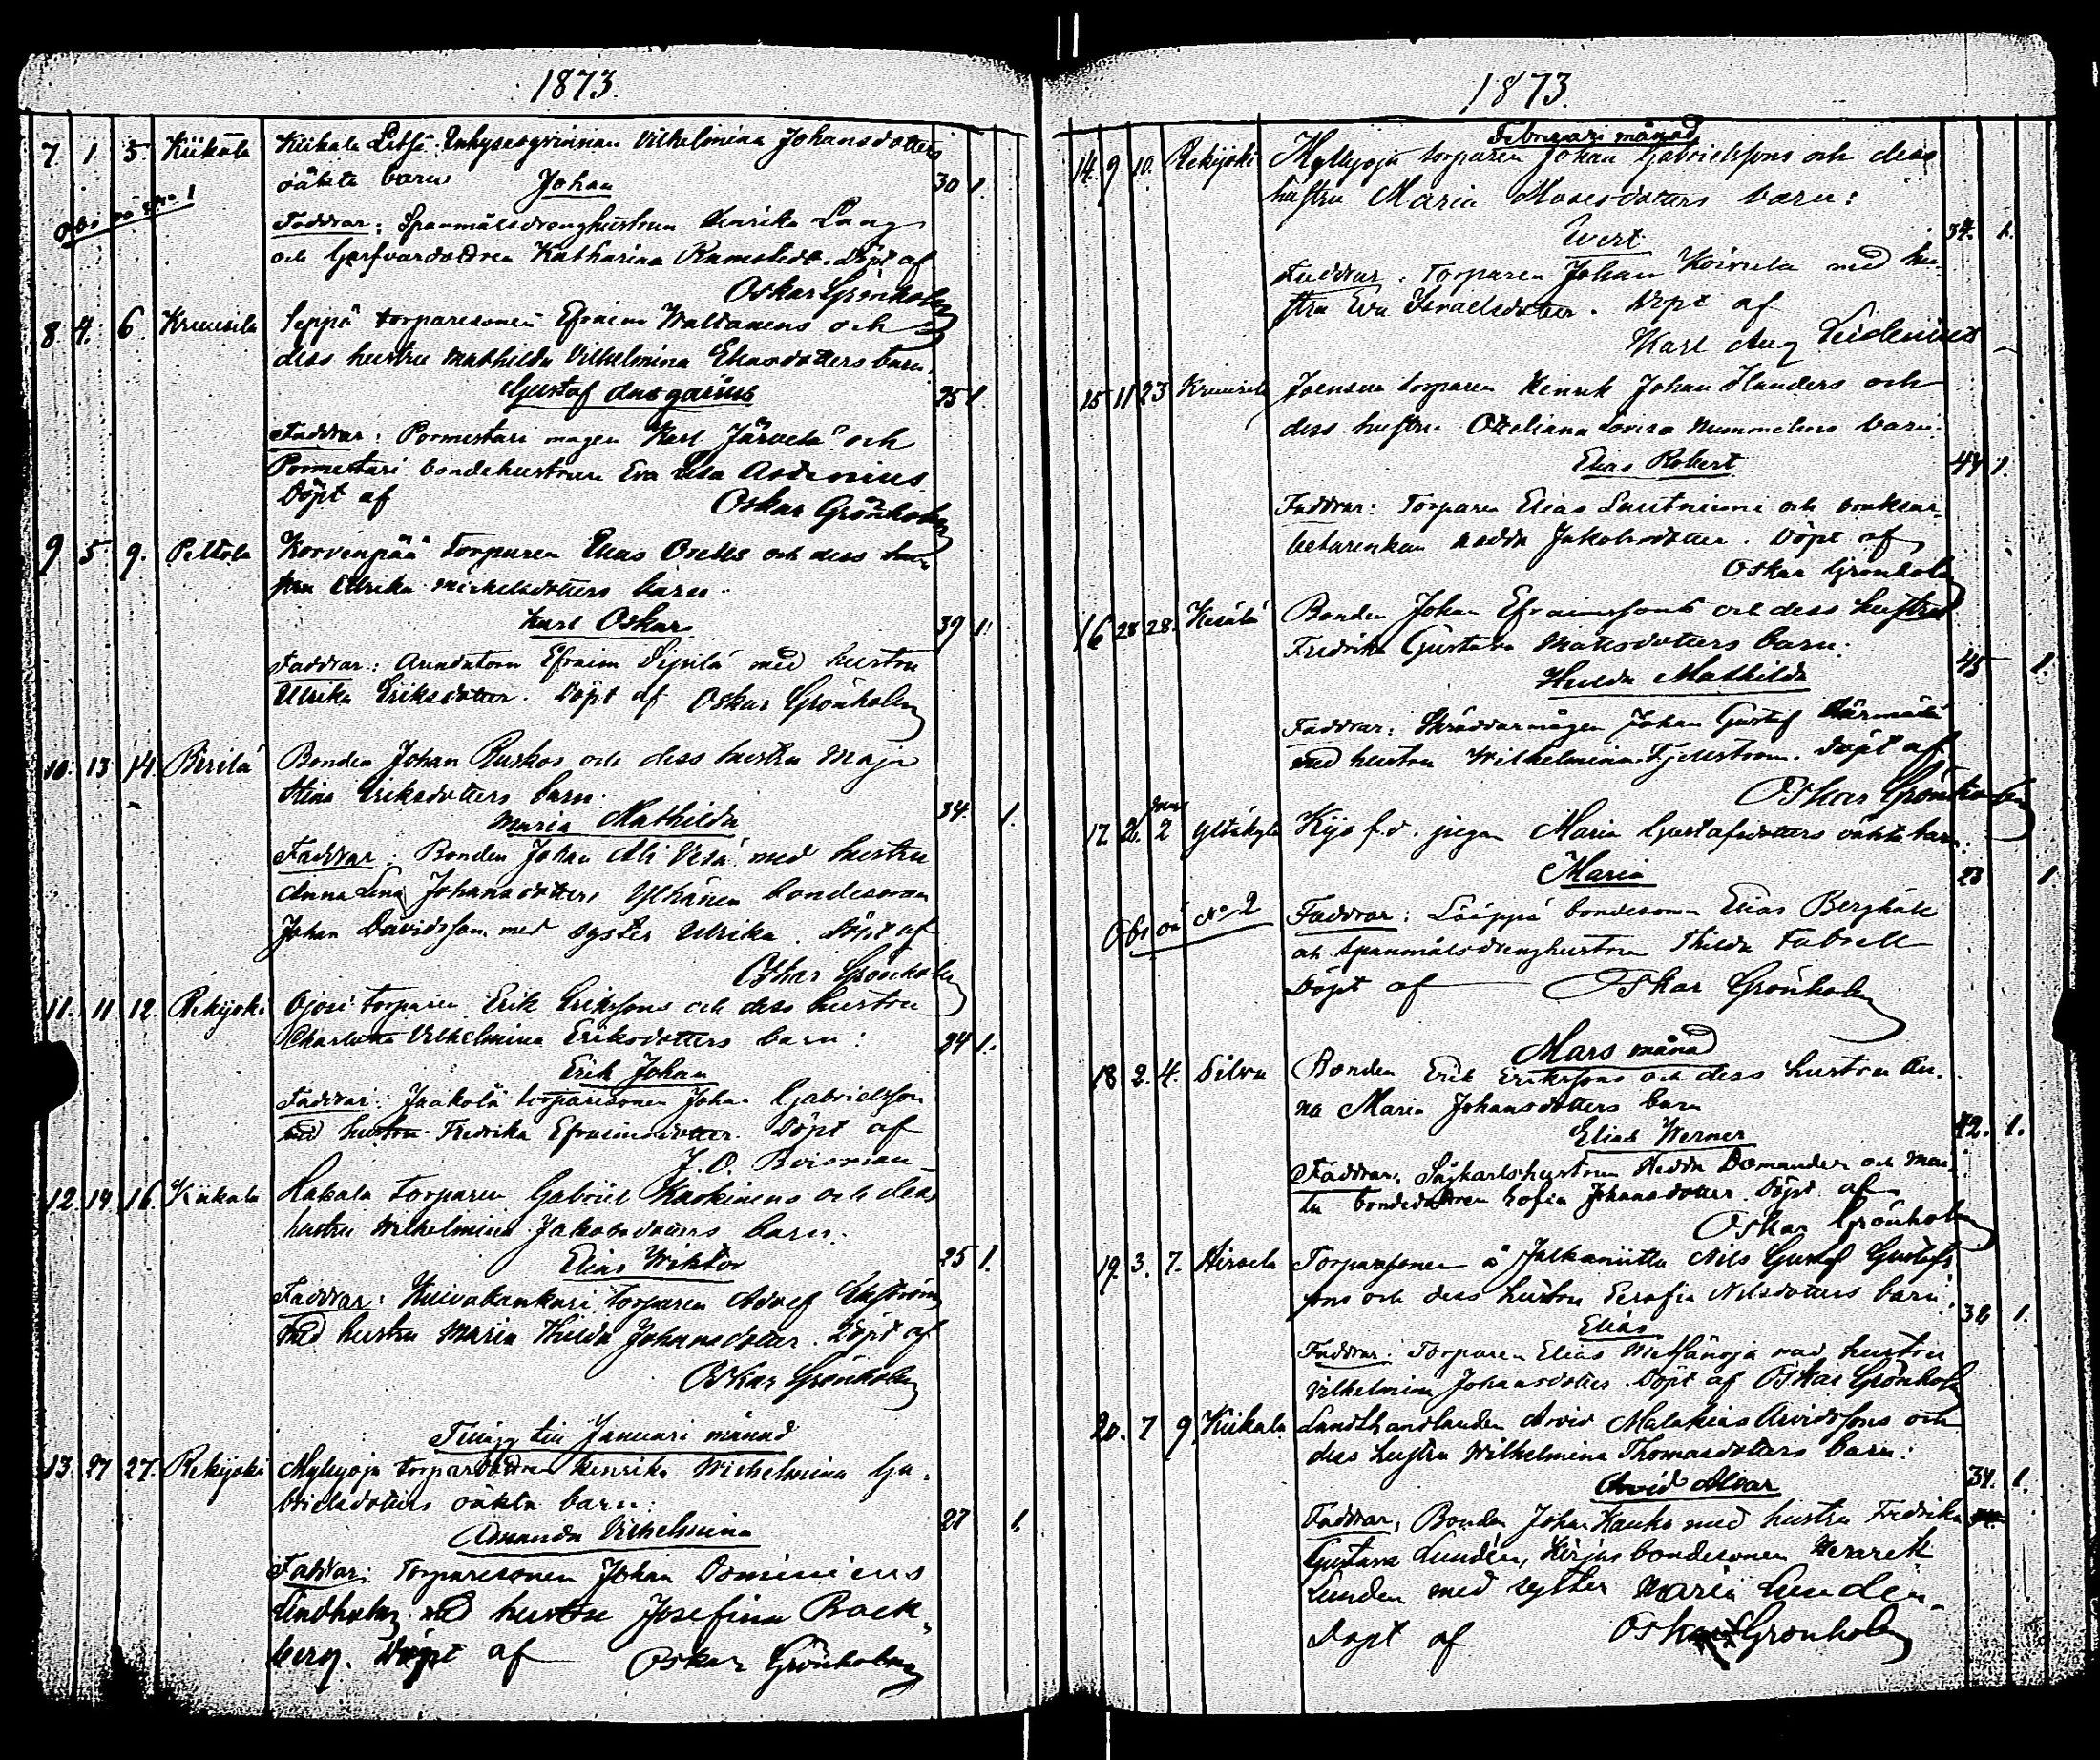 1873.
7. 1 5. Kiikala Kiikala Letsä Inhysesqvinnan Vilhelmina Johansdotters
oäkta barn Johan 30 1.
Obs oä No 1
Faddrar: Spanmålsdrenghustrun Henrika Lang
och Garfvardottren Katharina Ramstedt. Döpt af
Oskar Grönholm
8. 4. 6 Kruusila Seppä torparesonen Efraim Waltanens och
dess hustru Mathilda Vilhelmina Eliasdotters barn:
Gustaf Ansgarius 25 1
Faddrar: Pormestari mågen Karl Järvelä och
Pormestari bondehustrun Eva Lisa Astenius
Döpt af Oskar Grönholm
9 5 9. Peltola Korvenpää Torparen Elias Orells och dess hu-
stru Ulrika Mickelsdotters barn
Karl Oskar 39 1.
Faddrar: Arendatorn Efraim Sipilä med hustru
Ulrika Eriksdotter. Döpt af Oskar Grönholm
10. 13 14. Pirilä Bonden Johan Ruskos och dess hustru Maja
Stina Eriksdotters barn:
Maria Mathilda 34. 1.
Faddrar: Bonden Johan Ali Vesä med hustru
Anna Lena Johansdotter, Ylhäisen bondesonen
Johan Davidsson med syster Ulrika. Döpt af
Oskar Grönholm
11. 11 12. Rekijoki Ojasi torparen Erik Erikssons och dess hustru
Charlotta Vilhelmina Eriksdotters barn: 34 1.
Erik Johan
Faddrar: Jaakola torparesonen Johan Gabrielsson
med hustru Fredrika Efraimsdotter. Döpt af
J. O. Boisman
12. 14 16. Kiikala Hakala torparen Gabriel Kaskinens och dess
hustru Wilhelmina Jakobsdotters barn.
Elias Wiktor 25 1.
Faddrar: Kuivakankari torparen Adolf Ekström
med hustru Maria Hilda Johansdotter. Döpt af
Oskar Grönholm
Tillägg till Januari månad
13. 27 27. Rekijoki Myllyoja torpardottren Henrika Wilhelmina Ga-
brielsdotters oäkta barn:
Amanda Vilhelmina 27 1.
Faddrar: Torparesonen Johan Dominicus
Lindholm med hustru Josefina Back-
berg. Döpt af Oskar Grönholm
1873.
Februari månad
14. 9 10. Rekijoki Myllyoja torparen Johan Gabrielssons och dess
hustru Maria Mosesdotters barn:
Evert 34. 1.
Faddrar. Torparen Johan Koivula med hu-
stru Eva Israelsdotter. Döpt af
Karl Aug. Leidenius
15 11 23 Kruusila Joensuu torparen Henrik Johan Handers och
dess hustru Otteliana Lovisa Nummelins barn:
Elias Robert 44 1.
Faddrar: Torparen Elias Lautniemi och bruksar-
betarenkan Hedda Jakobsdotter. Döpt af
Oskar Grönholm
16 28 28. Kesälä Bonden Johan Efraimssons och dess hustru
Fredrika Gustava Matsdotters barn:
Hilda Mathilda 45 1.
Faddrar: Skräddarmågen Johan Gustaf Härmälä
med hustru Wilhelmina Fjellström. Döpt af
Oskar Grönholm
17. 26. mars 2 Yltäkylä Kyö f.d. pigan Maria Gustafsdotters oäkta barn:
Maria 23 1.
Obs oä No 2 Faddrar: Läippä bondesonen Elias Berghäll
och Spanmålsdrenghustrun Thilda Fabsell
Döpt af Oskar Grönholm
Mars månad
18 2. 4. Silva Bonden Erik Erikssons och dess hustru An-
na Maria Johansdotters barn
Elias Werner 42. 1.
Faddrar: Sågkarlshustrun Hedda Domander och Man-
tu bondedottren Sofia Johansdotter. Döpt af
Oskar Grönholm
19. 3. 7. Hirsela Torparesonen å Jalkaniittu Nils Gustaf Gustafs-
sons och dess hustru Serafia Nilsdotters barn:
Elias 32 1.
Faddrar: Torparen Elias Metsänoja med hustru
Vilhelmina Johansdotter. Döpt af Oskar Grönholm
20. 7 9. Kiikala Landthandlanden Arvid Malakias Arvidssons och
dess hustru Wilhelmina Thomasdotters barn:
Arvid Alvar 34. 1.
Faddrar: Bonden Johan Kauko med hustru Fredrika
Gustava Lundén, Kirjas bondesonen Henrik
Lunden med syster Maria Lunden.
Döpt af Oskar Grönholm